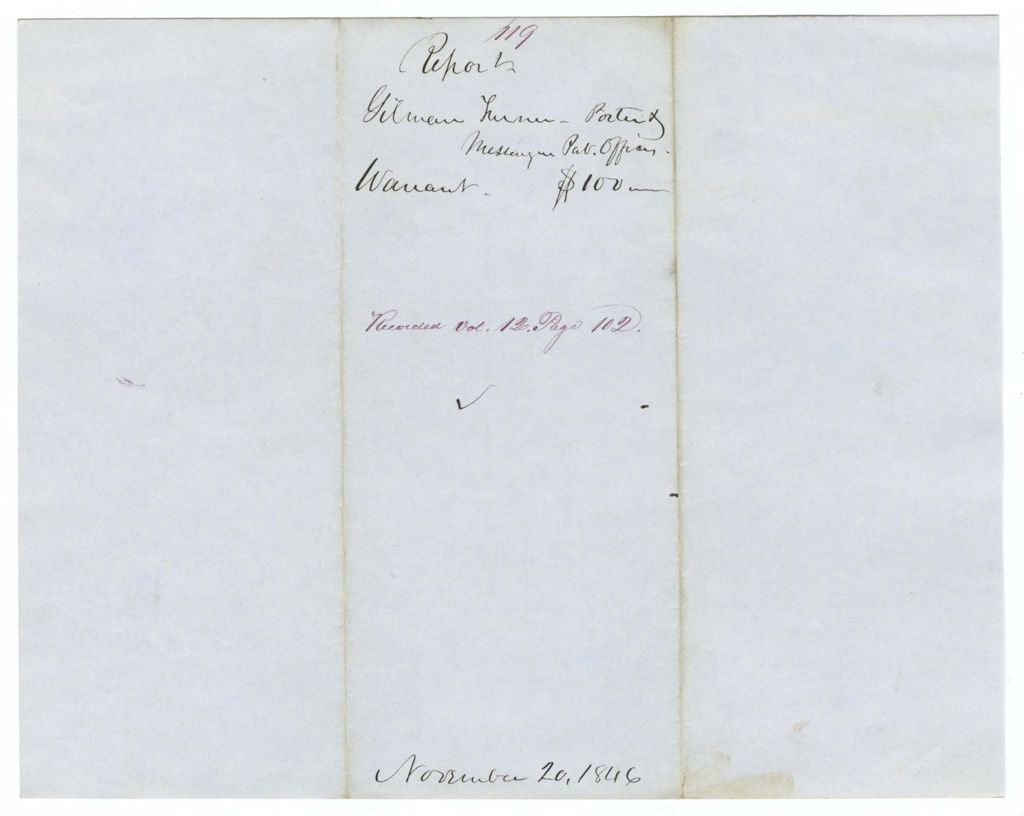 119
Report
Gilman Turner - Porter &
Messenger Pub. Offices -
Warrant. $100
Recorded Vol. 12. Page 102.
November 20, 1846